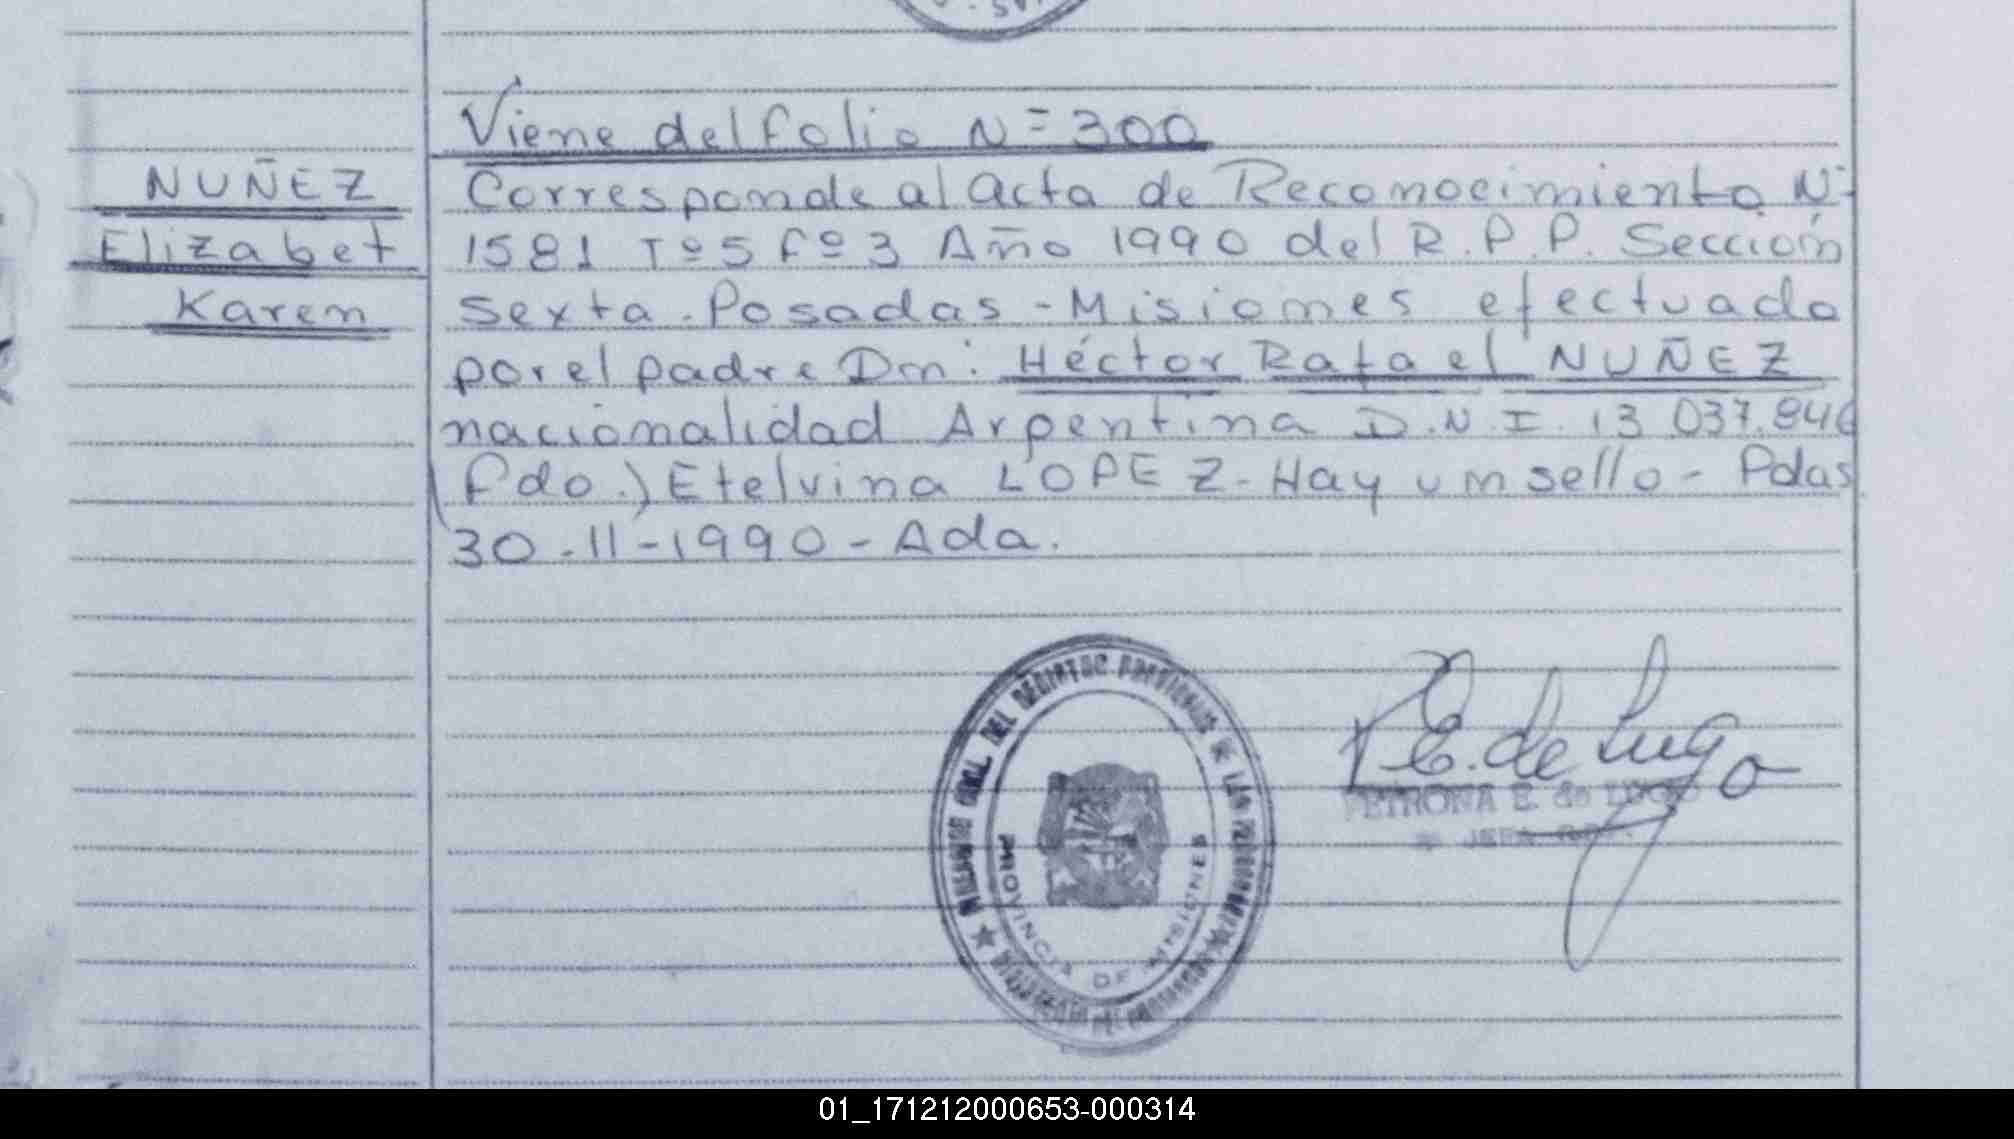 Viene del folio N= 300
NUÑEZ
Elizabet
Karen
Corresponde al acta de Reconocimiento N=
1581 Tº5 Fº3 Año 1990 del R.P.P. Sección
Sexta. Posadas - Misiones efectuado
por el padre Dn: Héctor Rafael NUÑEZ
nacionalidad Argentina D.N.I. 13.037.846
(Fdo.) Etelvina LOPEZ - Hay un sello - Pdas
30-11-1990 - Ada.
DEL REGISTRO PROVINCIAL DE LAS PERSONAS
PROVINCIA DE MISIONES
P E. de Lugo
PETRONA E. de LUGO
JEFA
01_171212000653-000314